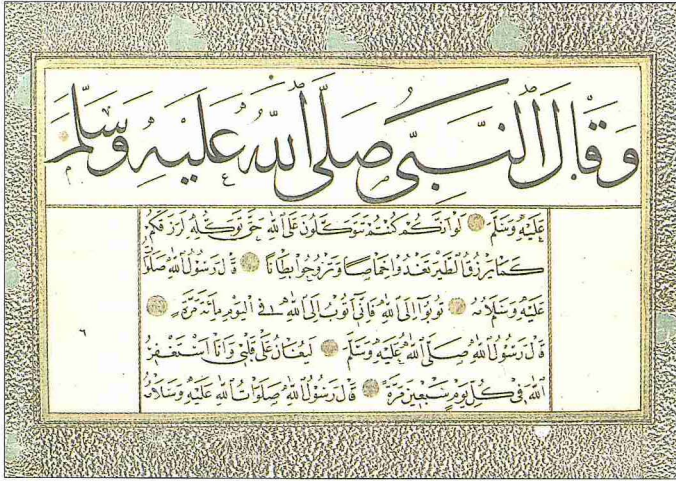 وَقَالَ النَّبِيُّ صَلَّى اللّٰهُ عَلَيْهِ وَسَلَّمَ
عَلَيْهِ وَسَلَّمَ لَوْ أَنَّكُمْ كُنْتُمْ تَتَوَكَّلُونَ عَلَى اللّٰهِ حَقَّ تَوَكُّلِهِ لَرَزَقَكُمْ
كَمَا يَرْزُقُ الطَّيْرَ تَغْدُوا خِمَاصًا وَتَرُوحُ بِطَانًا قَالَ رَسُولُ اللّٰهِ صَلَوَاتُ
عَلَيْهِ وَسَلَامُهُ تُوبُوا إِلَى اللّٰهِ فَإِنِّي أَتُوبُ إِلَى اللّٰهِ فِي الْيَوْمِ مِائَةَ مَرَّةٍ
قَالَ رَسُولُ اللّٰهِ صَلَّى اللّٰهُ عَلَيْهِ وَسَلَّمَ لَيُغَانُ عَلَى قَلْبِي وَأَنَا أَسْتَغْفِرُ
اللّٰهَ فِي كُلِّ يَوْمٍ سَبْعِينَ مَرَّةً قَالَ رَسُولُ اللّٰهِ صَلَوَاتُ اللّٰهِ عَلَيْهِ وَسَلَامُهُ
٦